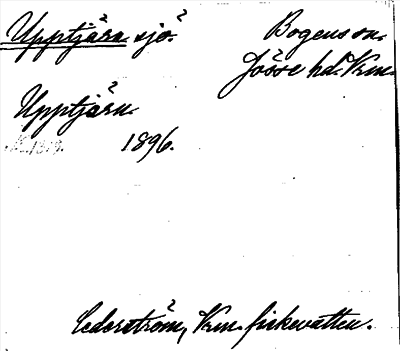 Upptjärn sjö.
Bogens sn.
Jösse hd. Vrm.
Upptjärn.
1896.
Cederström, Vrm. fiskevatten.